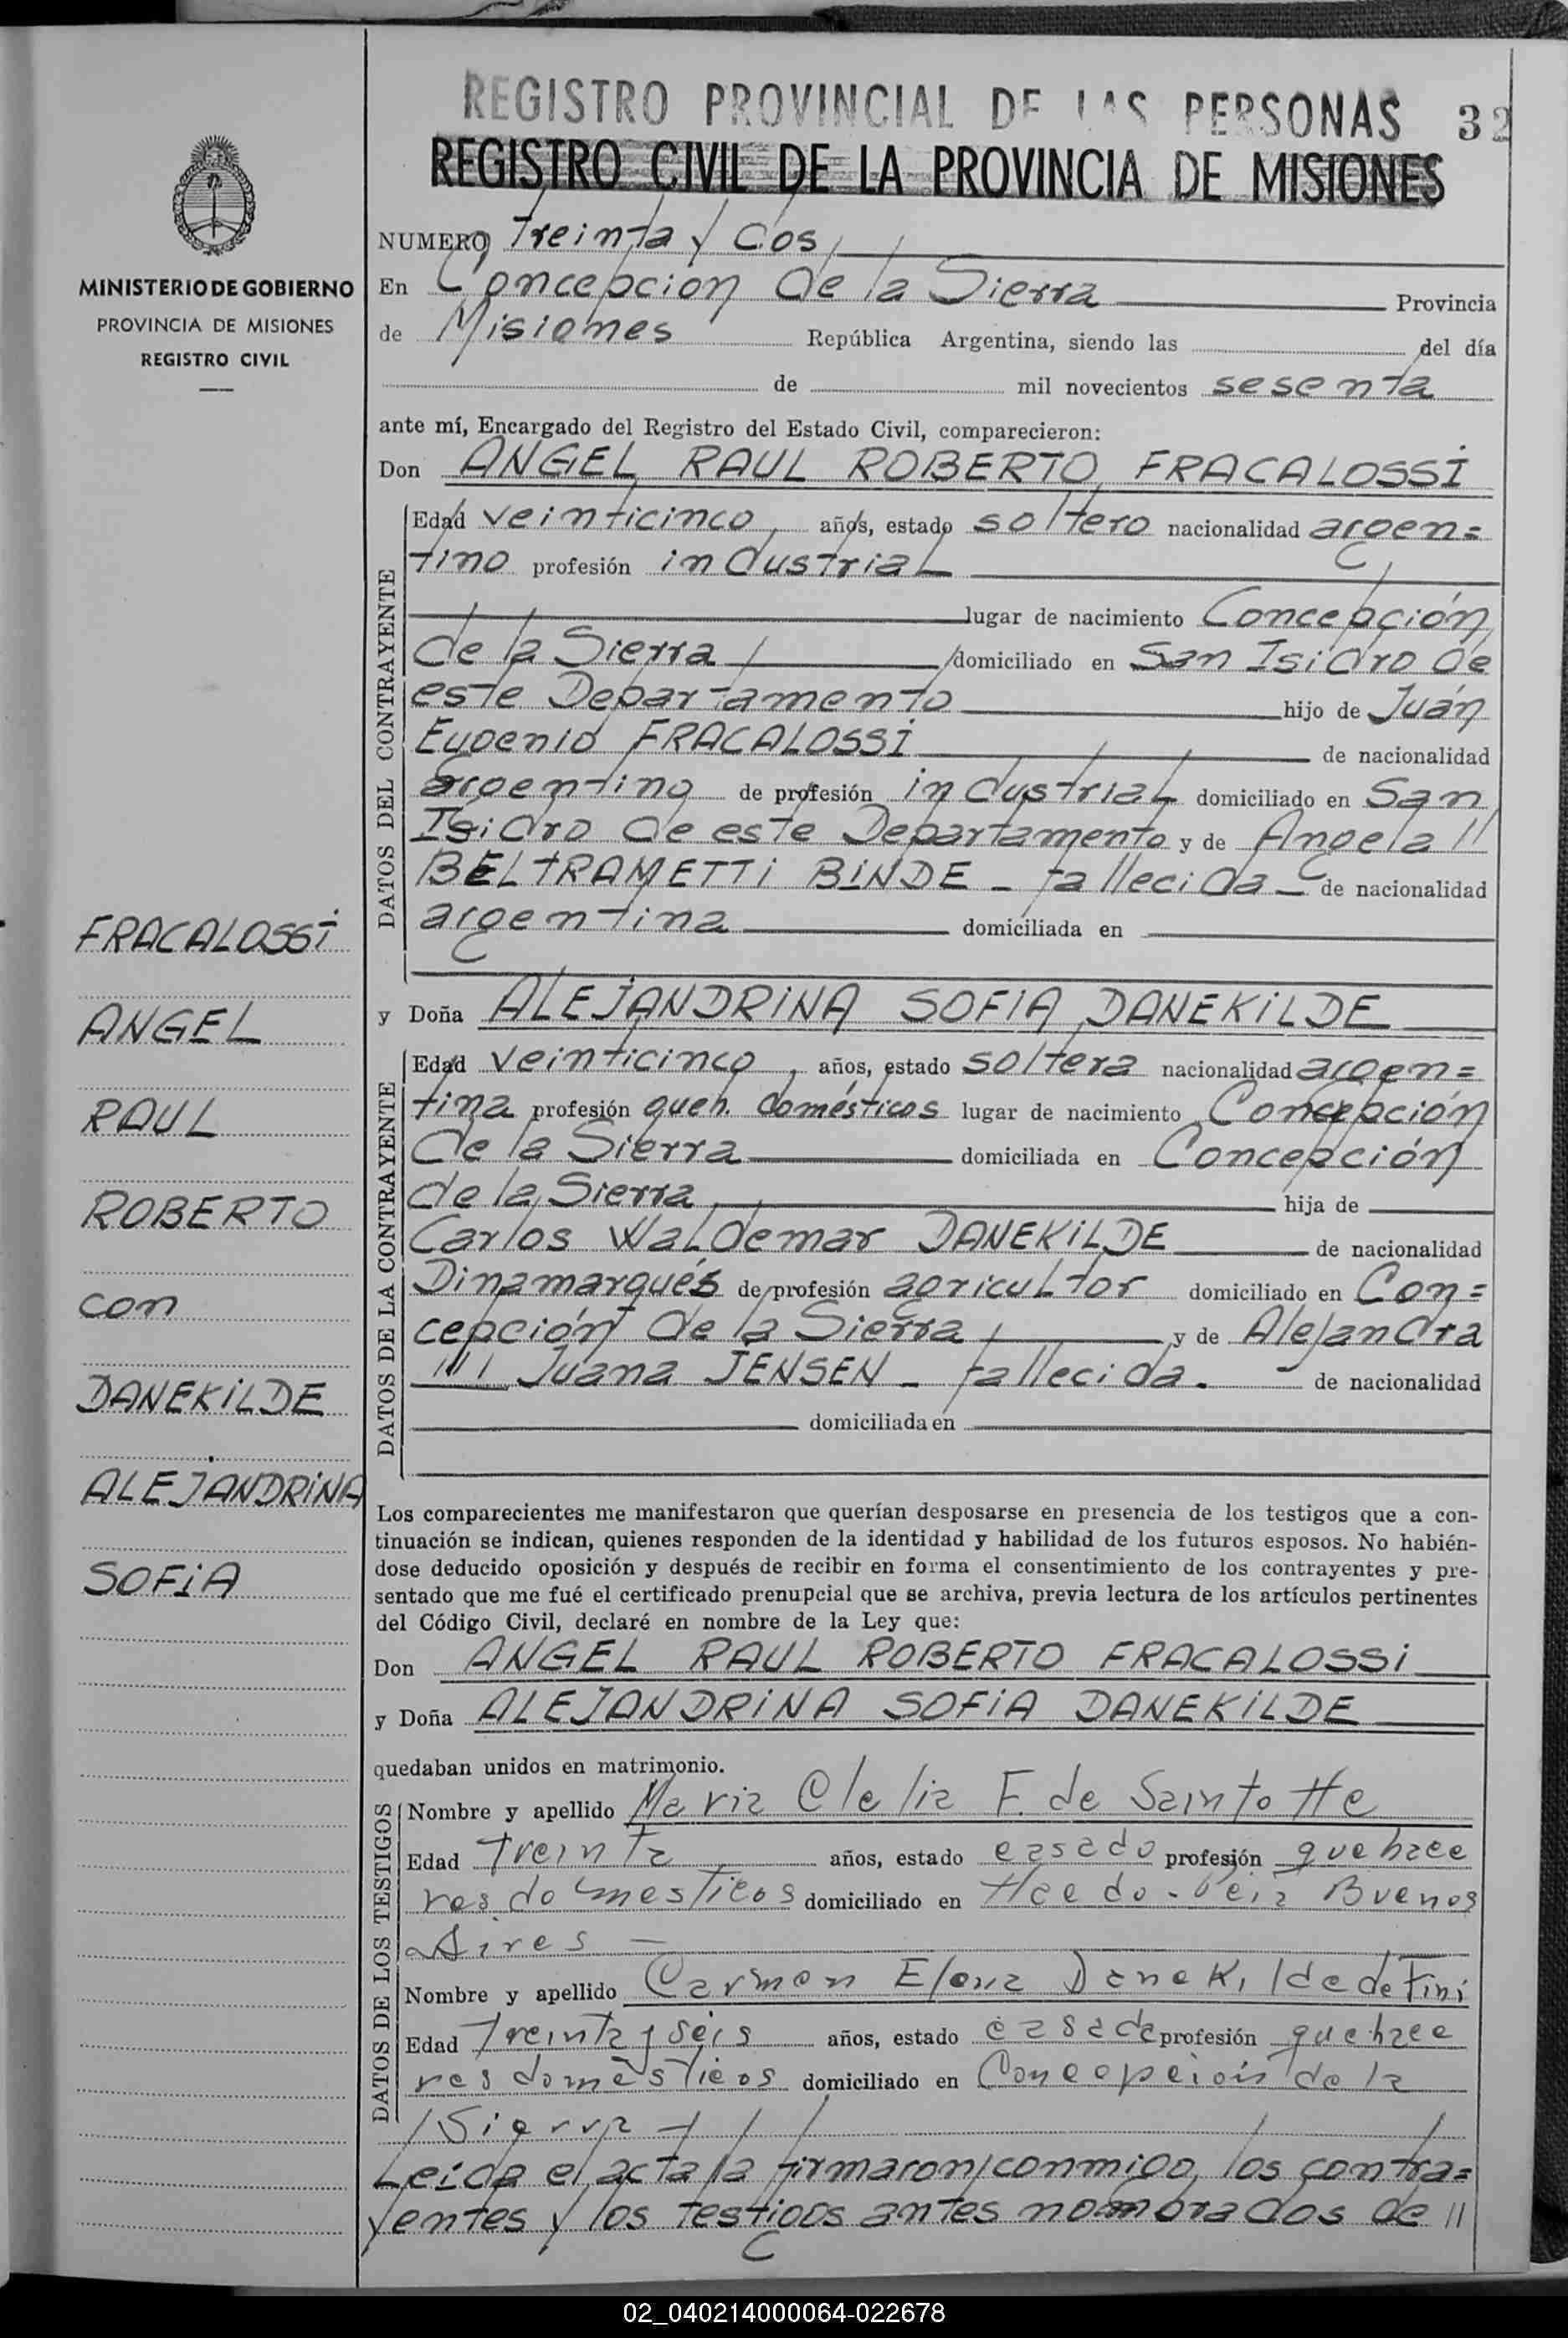 REGISTRO PROVINCIAL DE LAS PERSONAS 32
REGISTRO CIVIL DE LA PROVINCIA DE MISIONES
MINISTERIO DE GOBIERNO
PROVINCIA DE MISIONES
REGISTRO CIVIL
FRACALOSSI
ANGEL
RAUL
ROBERTO
con
DANEKILDE
ALEJANDRINA
SOFIA
NUMERO Treinta y dos
En Concepcion de la Sierra Provincia
de Misiones República Argentina, siendo las del día
de mil novecientos sesenta
ante mí, Encargado del Registro del Estado Civil, comparecieron:
Don ANGEL RAUL ROBERTO FRACALOSSI
DATOS DEL CONTRAYENTE
Edad veinticinco años, estado soltero nacionalidad argen=
tino profesión industrial
lugar de nacimiento Concepción
de la Sierra domiciliado en San Isidro de
este Departamento hijo de Juán
Eugenio FRACALOSSI de nacionalidad
argentino de profesión industrial domiciliado en San
Isidro de este Departamento y de Angela //
BELTRAMETTI BINDE - fallecida - de nacionalidad
argentina domiciliada en
y Doña ALEJANDRINA SOFIA DANEKILDE
DATOS DE LA CONTRAYENTE
Edad veinticinco, años, estado soltera nacionalidad argen=
tina profesión queh. domésticos lugar de nacimiento Concepción
de la Sierra domiciliada en Concepción
de la Sierra hija de
Carlos Waldemar DANEKILDE de nacionalidad
Dinamarqués de profesión agricultor domiciliado en Con=
cepción de la Sierra y de Alejandra
//// Juana JENSEN - fallecida. de nacionalidad
domiciliada en
Los comparecientes me manifestaron que querían desposarse en presencia de los testigos que a con-
tinuación se indican, quienes responden de la identidad y habilidad de los futuros esposos. No habién-
dose deducido oposición y después de recibir en forma el consentimiento de los contrayentes y pre-
sentado que me fué el certificado prenupcial que se archiva, previa lectura de los artículos pertinentes
del Código Civil, declaré en nombre de la Ley que:
Don ANGEL RAUL ROBERTO FRACALOSSI
y Doña ALEJANDRINA SOFIA DANEKILDE
quedaban unidos en matrimonio.
DATOS DE LOS TESTIGOS
Nombre y apellido Maria Clelia F. de Sainte
Edad Treinta años, estado casado profesión quehace
res domesticos domiciliado en Haedo - Buenos
Aires -
Nombre y apellido Carmen Elena Danekilde de Fini
Edad Treinta y seis años, estado casada profesión quehace
res domèsticos domiciliado en Concepción de la
Sierra
Leida el acta la firmaron conmigo los contra=
yentes y los testigos antes nombrados de //
02_040214000064-022678